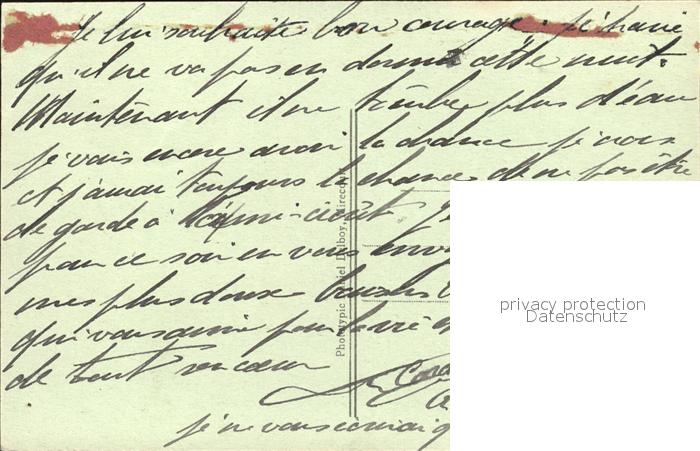 Je lui souhaite bon courage. Je parie
qu'il ne va pas en dormir cette nuit.
Maintenant il ne tombe plus d'eau
je vais encore avoir la chance je crois
et j'aurai toujours la chance de ne pas être
de garde à
pour ce soir en vous
mes plus doux baisers
qui vous aime pour la vie
de tout son coeur
je ne vous
Phototypie Daniel Delboy, Mirecourt
privacy protection
Datenschutz